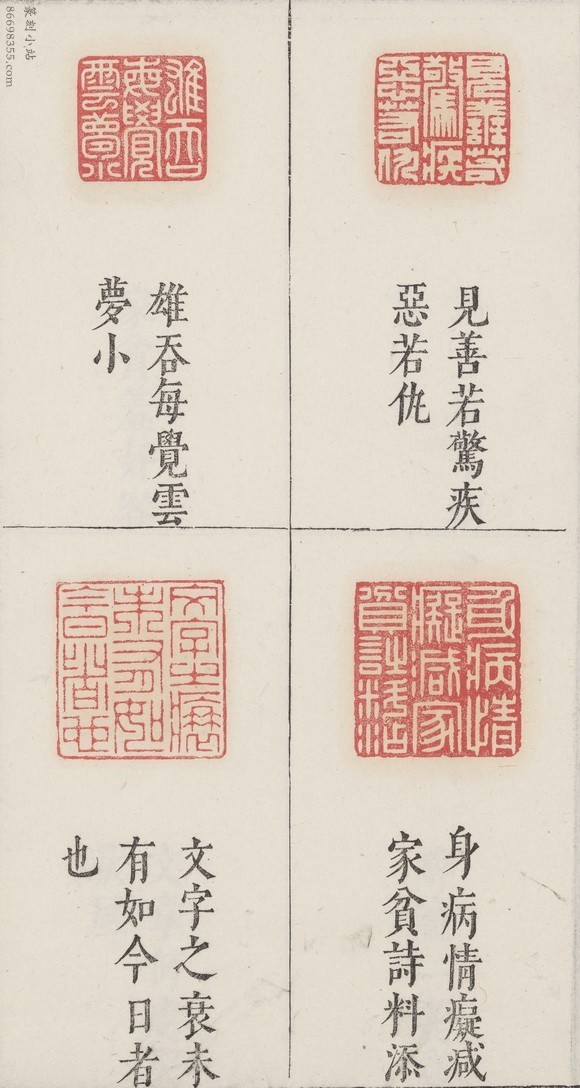 篆刻小站
86698355.com
見善若驚疾
惡若仇
雄吞每覺雲
夢小
身病情癡减
家貧詩料添
文字之衰未
有如今日者
也